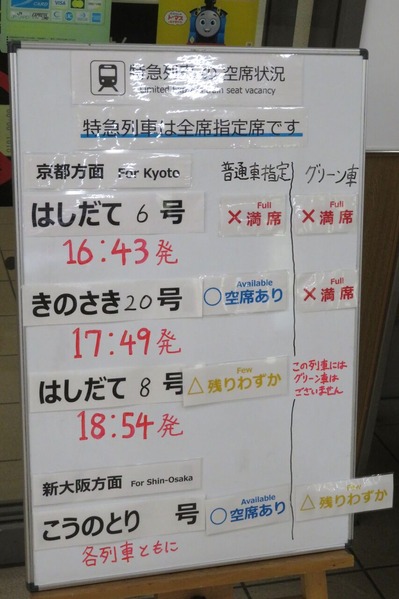 特急列車の空席状況
Limited express train seat vacancy
特急列車は全席指定席です
京都方面 For Kyoto
普通車指定 グリーン車
はしだて 6 号
Full
×満席
Full
×満席
16:43発
きのさき 20 号
Available
○空席あり
Full
×満席
17:49発
はしだて 8 号
Few
△残りわずか
この列車には
グリーン車は
ございません
18:54発
新大阪方面 For Shin-Osaka
こうのとり 号
Available
○空席あり
Few
△残りわずか
各列車ともに